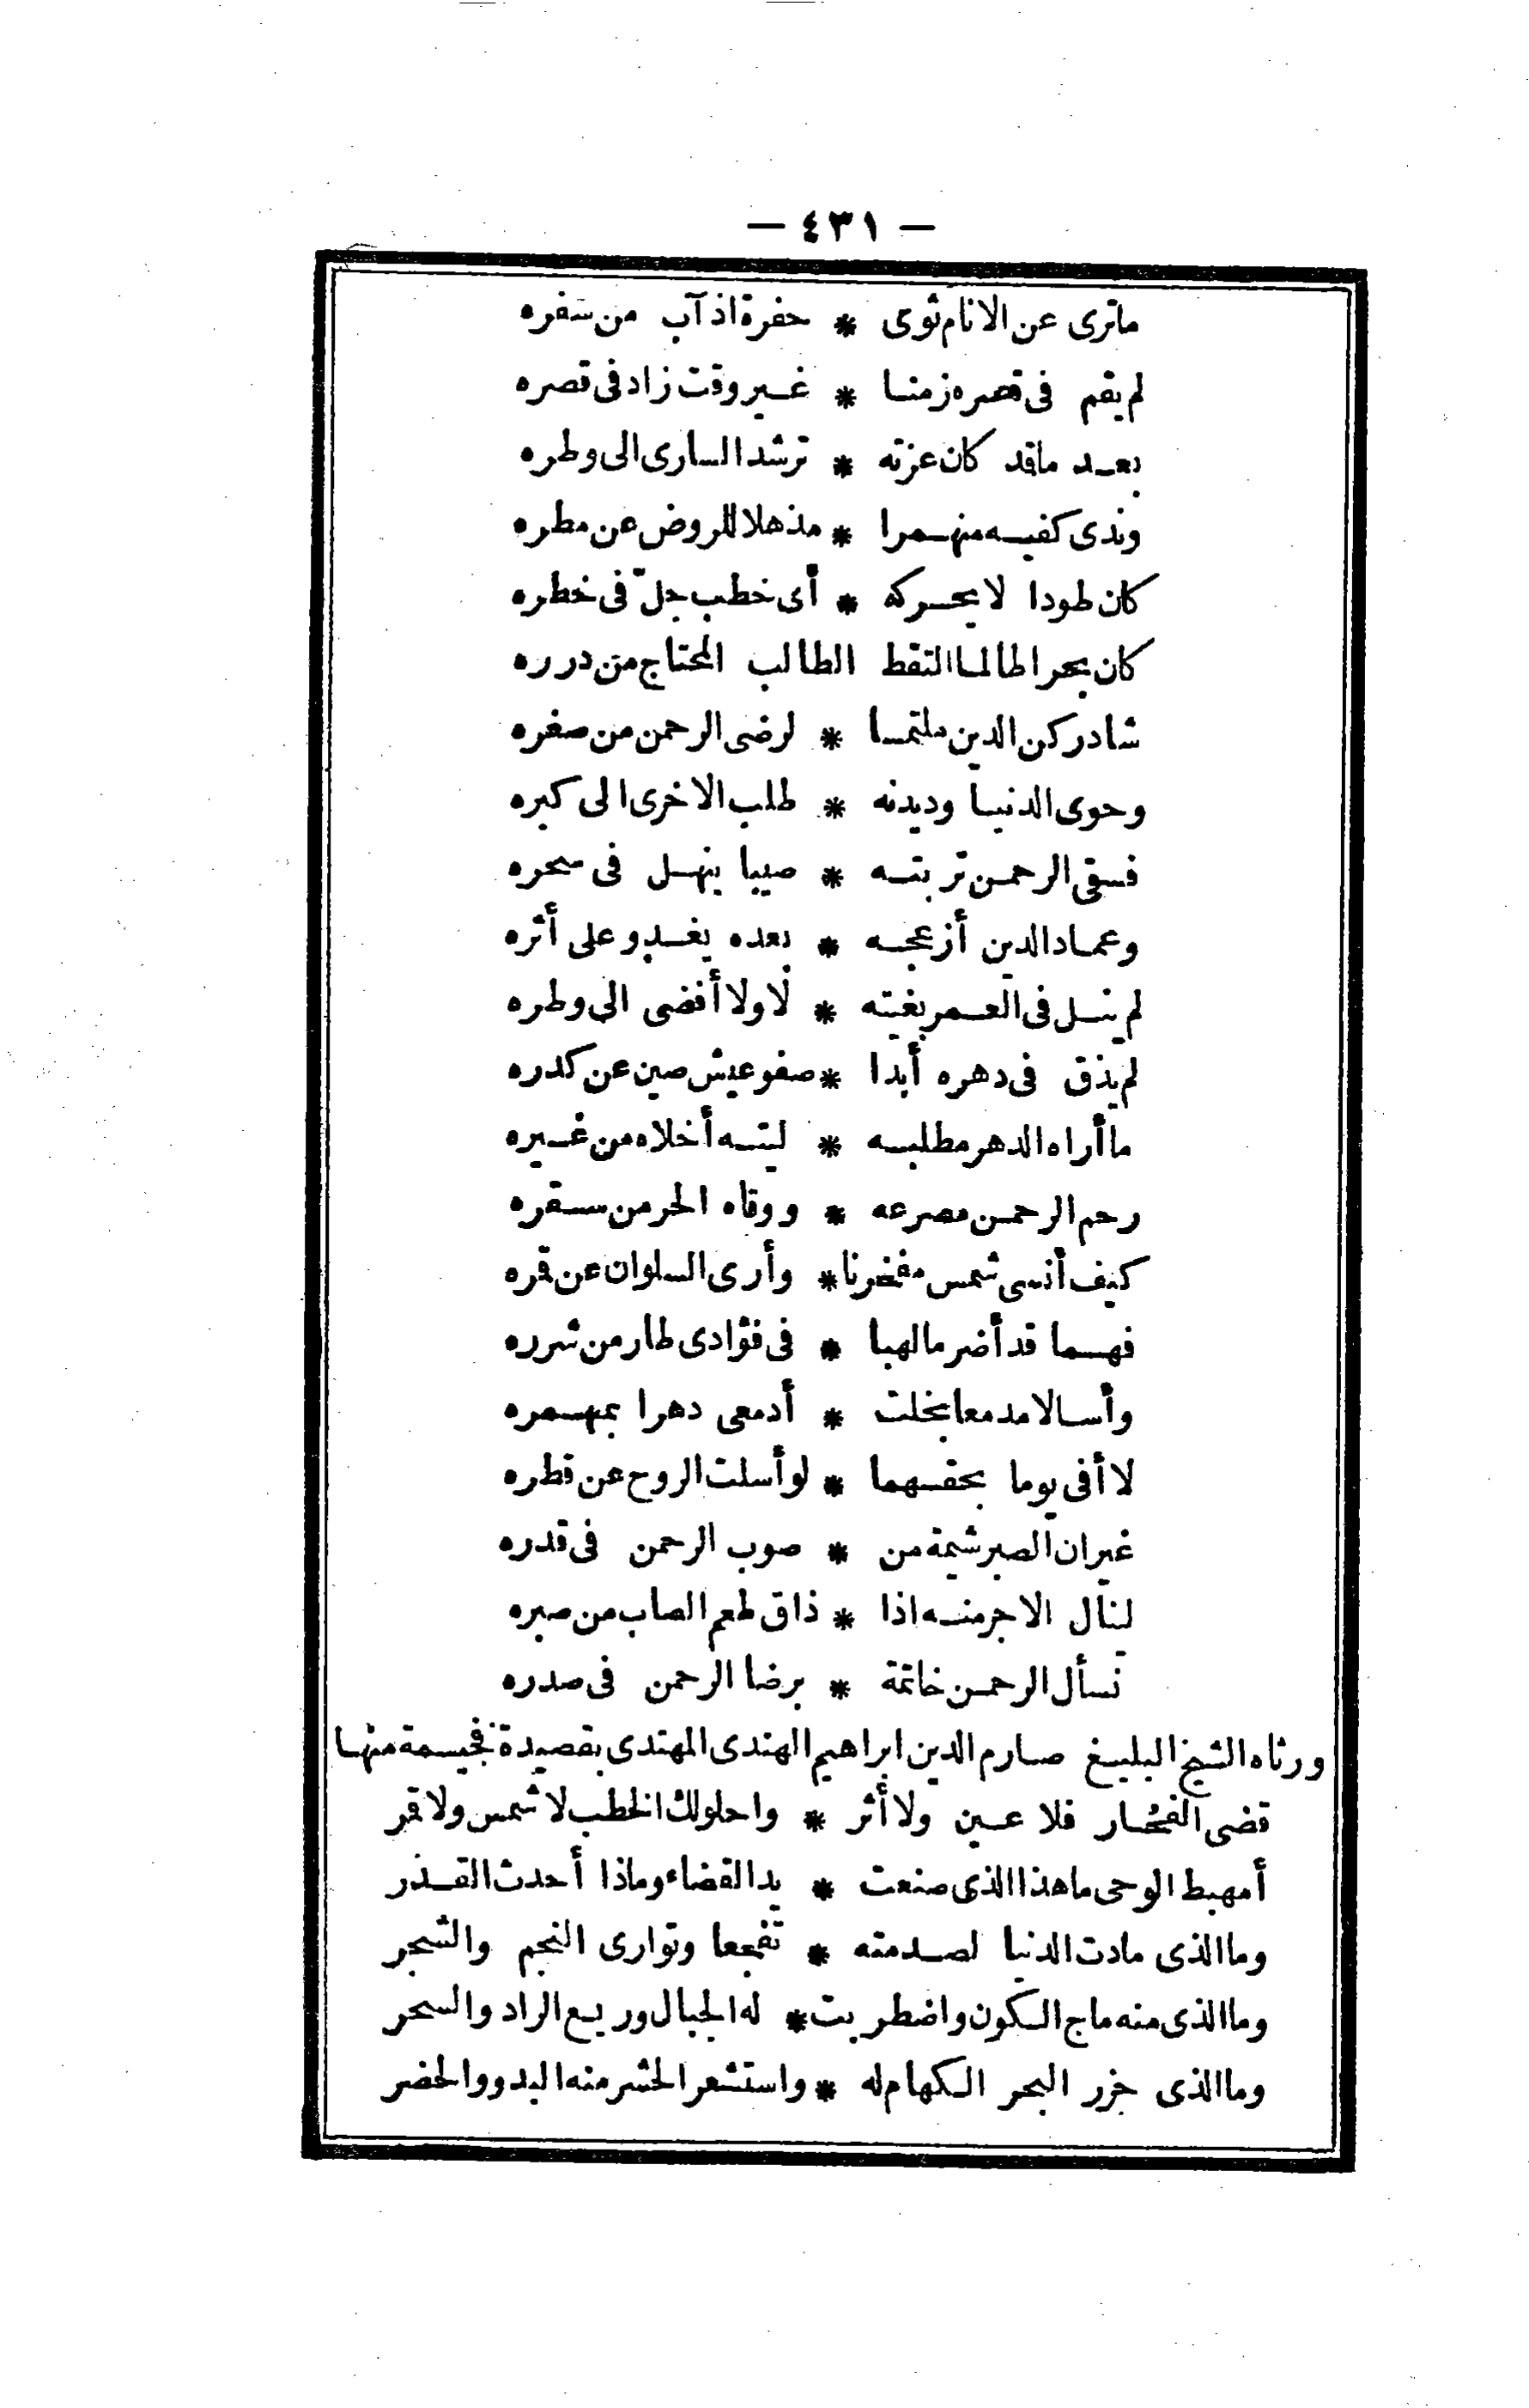 — ٤٣١ —
ماترى عن الانام ثوى * حفرة اذ آب من سفره
لم يقم فى قصره زمنا * غير وقت زاد فى قصره
بعد ماقد كان عزته * ترشد السارى الى وطره
وندى كفيه منهمرا * مذهلا للروض عن مطره
كان طودا لا يحركه * أى خطب جلّ فى خطره
كان بحرا طالما التقط الطالب المحتاج من درره
شاد ركن الدين ملتمسا * لرضى الرحمن من صغره
وحوى الدنيا وديدنه * طلب الاخرى الى كبره
فسقى الرحمن تربته * صيبا ينهل فى سحره
وعماد الدين أزعجه * بعده يغدو على أثره
لم ينل فى العمر بغيته * لا ولا أفضى الى وطره
لم يذق فى دهره أبدا * صفو عيش صين عن كدره
ما أراه الدهر مطلبه * ليته أخلاه من غيره
رحم الرحمن مصرعه * ووقاه الحر من سقره
كيف أنسى شمس مفخرنا * وأرى السلوان عن قمره
فهما قد أضرما لهبا * فى فؤادى طار من شرره
وأسالا مدمعا بخلت * أدمعى دهرا بمنهمره
لا أفى يوما بحقهما * لو أسلت الروح عن قطره
غير ان الصبر شيمة من * صوب الرحمن فى قدره
لننال الاجر منه اذا * ذاق طعم الصاب من صبره
نسأل الرحمن خاتمة * برضا الرحمن فى صدره
ورثاه الشيخ البليغ صارم الدين ابراهيم الهندى المهتدى بقصيدة فخيمة منها
قضى الفخار فلا عين ولا أثر * واحلولك الخطب لا شمس ولا قمر
أمهبط الوحى ما هذا الذى صنعت * يد القضاء وماذا أحدث القدر
وما الذى مادت الدنيا لصدمته * تفجعا وتوارى النجم والشجر
وما الذى منه ماج الكون واضطربت * له الجبال وريع الراد والسحر
وما الذى جزر البحر الكهام له * واستشعر الحشر منه البدو والحضر